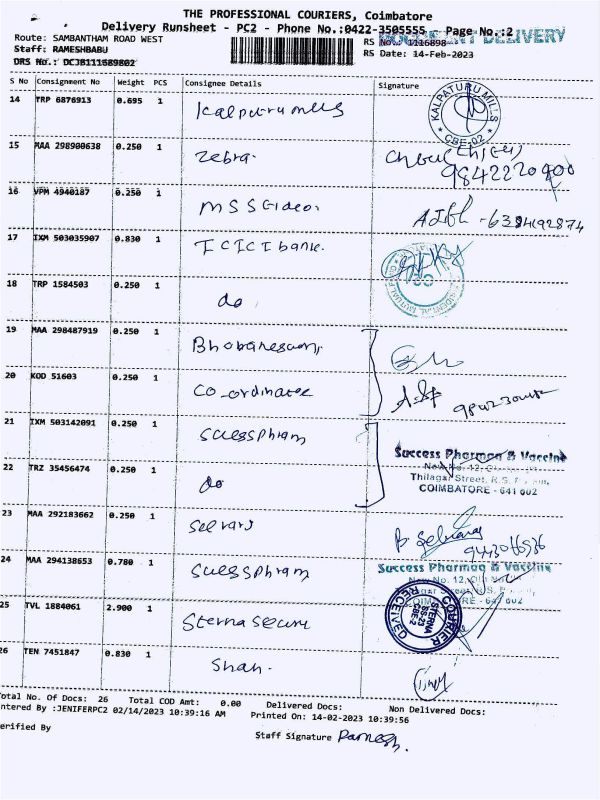 THE PROFESSIONAL COURIERS, Coimbatore
Delivery Runsheet - PC2 - Phone No.:0422-3505555 Page No.:2
Route: SAMBANTHAM ROAD WEST
Staff: RAMESHBABU
DRS No.: DCJB111689802
RS No.: 1116898
RS Date: 14-Feb-2023
DELIVERY
S No Consignment No Weight PCS Consignee Details Signature
14 TRP 6876913 0.695 1 Kalpaturu mills
KALPATURU MILLS CBE-02
15 MAA 298900638 0.250 1 Zebra.
16 VPM 4940187 0.250 1
17 IXM 503035907 0.830 1 ICICI bank.
18 TRP 1584503 0.250 1 do
19 MAA 298487919 0.250 1
20 KOD 51603 0.250 1 Co-ordinator
21 IXM 503142091 0.250 1
Success Pharmaa & Vaccine
New No. 12,
Thilagar Street, R.S.
COIMBATORE - 641 002
22 TRZ 35456474 0.250 1 do
23 MAA 292183662 0.250 1 Selvaraj
24 MAA 294138653 0.780 1
Success Pharmaa & Vaccine
New No. 12,
25 TVL 1884061 2.900 1 Sterna Secure
COURIER RECEIVED
STERNA
SS-23
CBE-2
26 TEN 7451847 0.830 1 Shan.
Total No. Of Docs: 26 Total COD Amt: 0.00 Delivered Docs: Non Delivered Docs:
ntered By :JENIFERPC2 02/14/2023 10:39:16 AM Printed On: 14-02-2023 10:39:56
erified By
Staff Signature Ramesh.